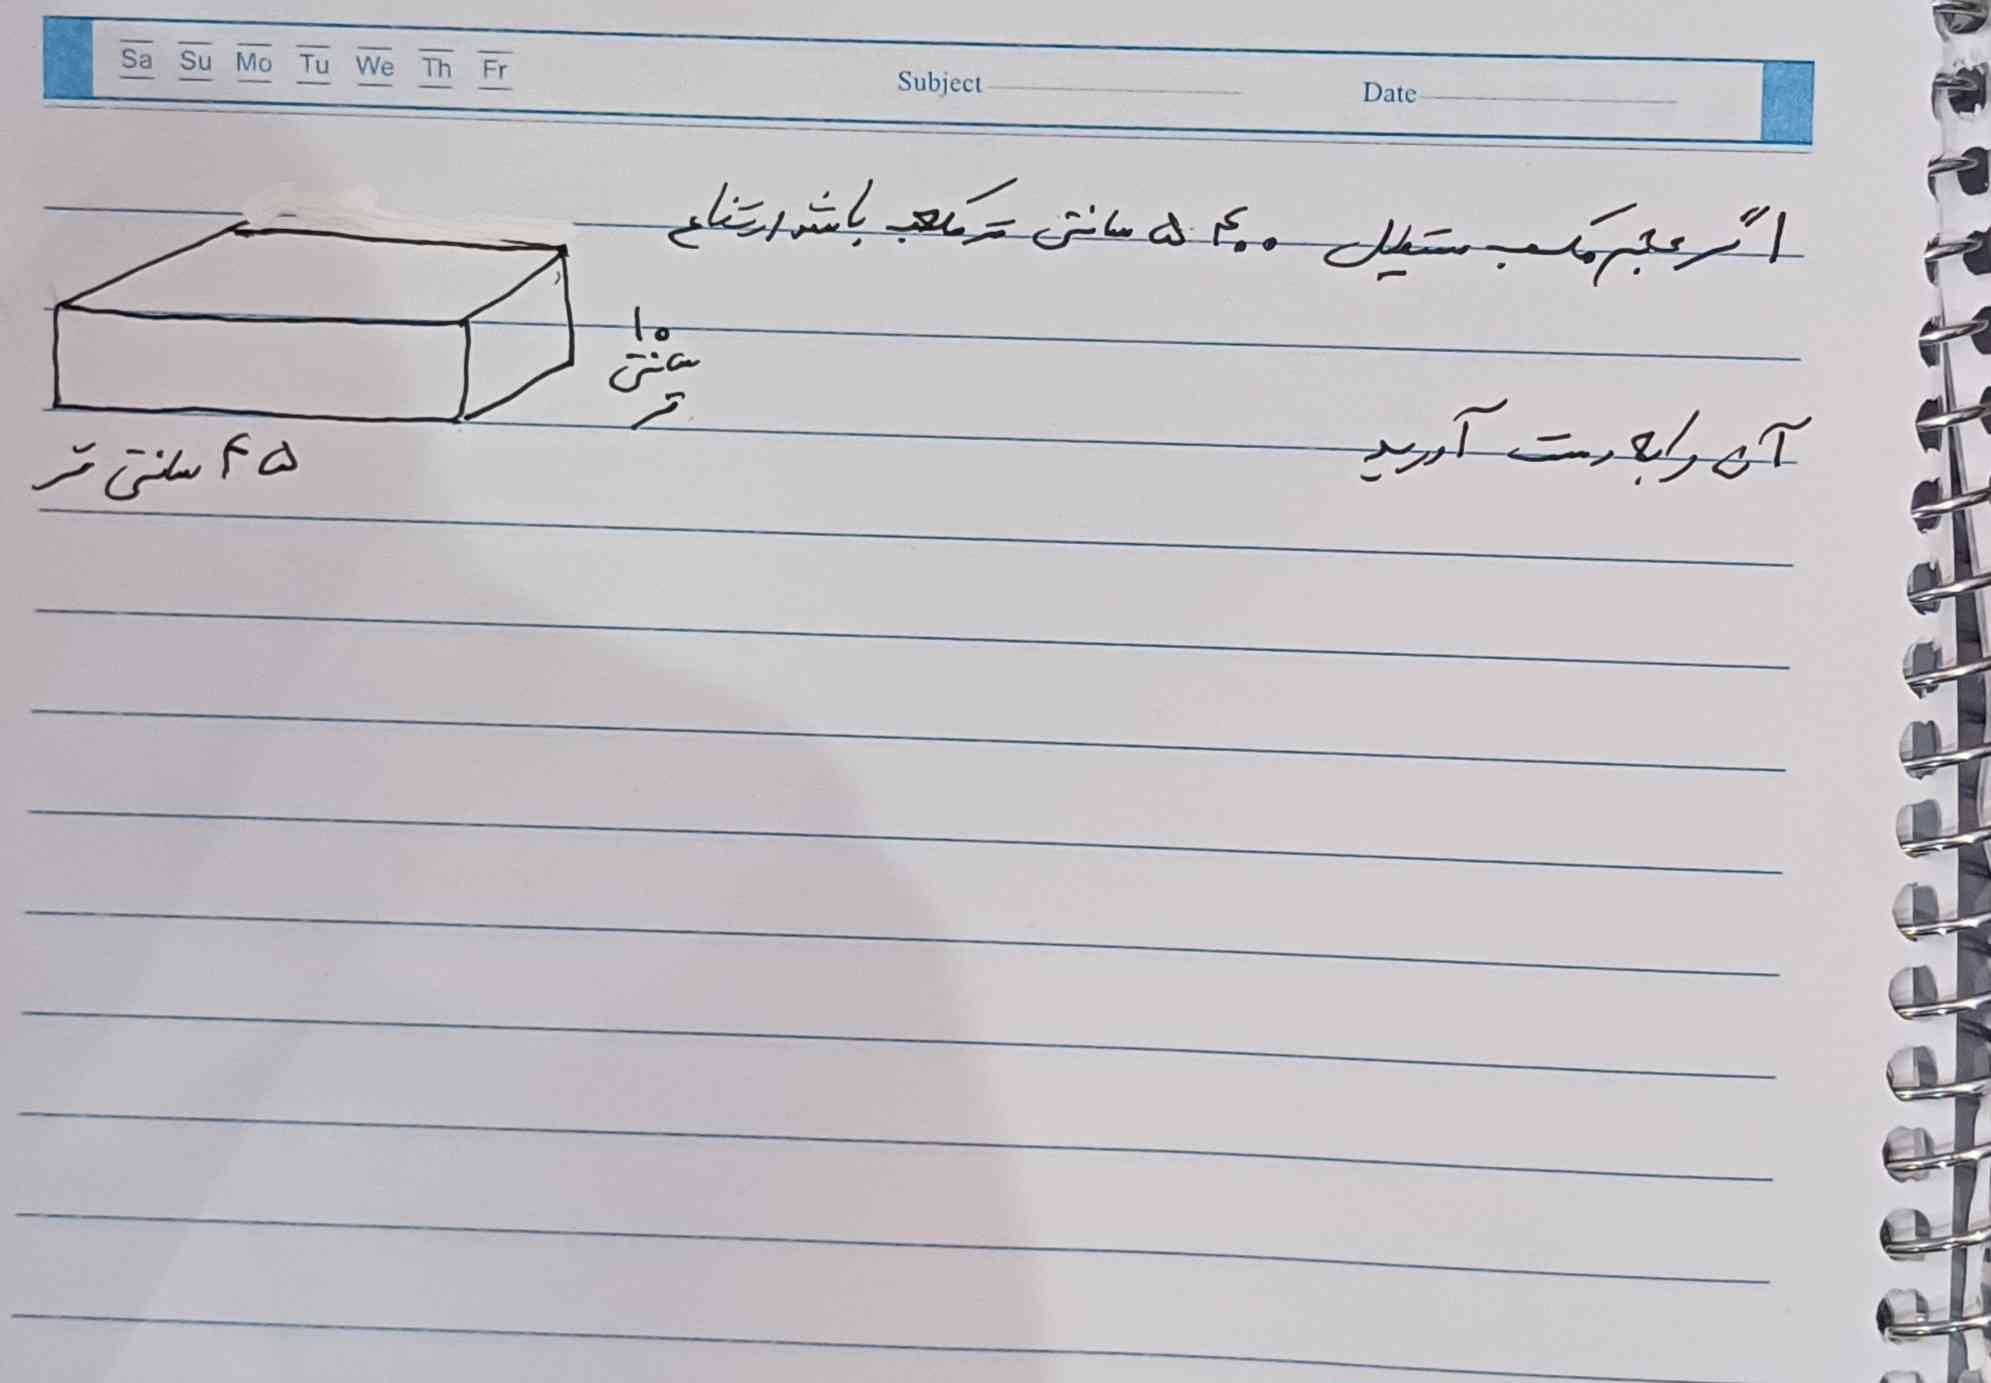 Sa Su Mo Tu We Th Fr Subject Date
اگر حجم مکعب مستطیل ۵۴۰۰ سانتی متر مکعب باشد ارتفاع
آن را به دست آورید
۱۰
سانتی
متر
۴۵ سانتی متر